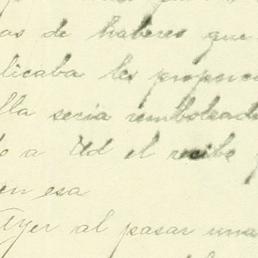 as de haberes que
licaba les proporci
lla seria rembolsada
o a Ud el recibo
en esa
Ayer al pasar una